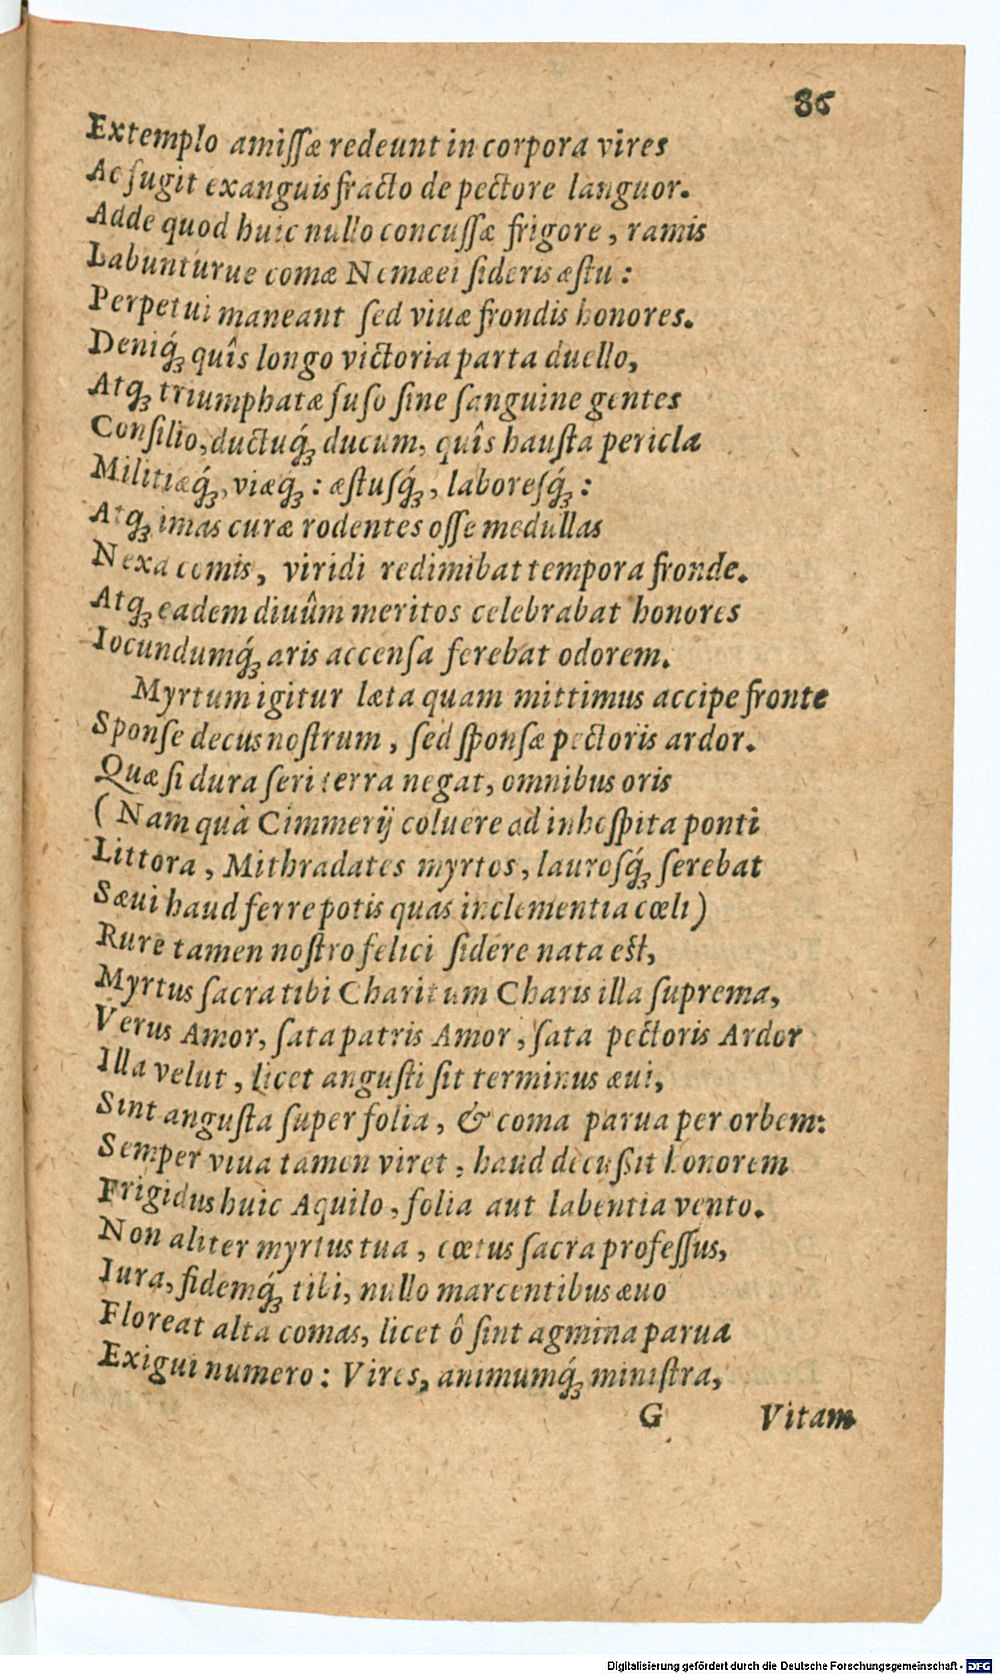 86
Extemplo amiſſæ redeunt in corpora vires
Ac fugit exanguis fracto de pectore languor.
Adde quod huic nullo concuſſæ frigore, ramis
Labunturue comæ Nemæei ſideris æſtu:
Perpetui maneant ſed viuæ frondis honores.
Deniq́ꝫ quîs longo victoria parta duello,
Atqꝫ triumphatæ fuſo ſine ſanguine gentes
Conſilio, ductuq́ꝫ ducum, quîs hauſta pericla
Militiæq́ꝫ, viæq́ꝫ: æſtuſq́ꝫ, laboreſq́ꝫ:
Atqꝫ imas curæ rodentes oſſe medullas
Nexa comis, viridi redimibat tempora fronde.
Atqꝫ eadem diuûm meritos celebrabat honores
Iocundumq́ꝫ aris accenſa ferebat odorem.
Myrtum igitur læta quam mittimus accipe fronte
Sponſe decus noſtrum, ſed ſponſæ pectoris ardor.
Quæ ſi dura ſeri terra negat, omnibus oris
(Nam quà Cimmerij coluere ad inhoſpita ponti
Littora, Mithradates myrtos, lauroſq́ꝫ ſerebat
Sæui haud ferre potis quas inclementia cœli)
Rure tamen noſtro felici ſidere nata eſt,
Myrtus ſacra tibi Charitum Charis illa ſuprema,
Verus Amor, ſata patris Amor, ſata pectoris Ardor
Illa velut, licet anguſti ſit terminus æui,
Sint anguſta ſuper folia, & coma parua per orbem:
Semper viua tamen viret, haud decuſſit honorem
Frigidus huic Aquilo, folia aut labentia vento.
Non aliter myrtus tua, cœtus ſacra profeſſus,
Iura, fidemq́ꝫ tibi, nullo marcentibus æuo
Floreat alta comas, licet ô ſint agmina parua
Exigui numero: Vires, animumq́ꝫ miniſtra,
G Vitam
Digitalisierung gefördert durch die Deutsche Forschungsgemeinschaft - DFG